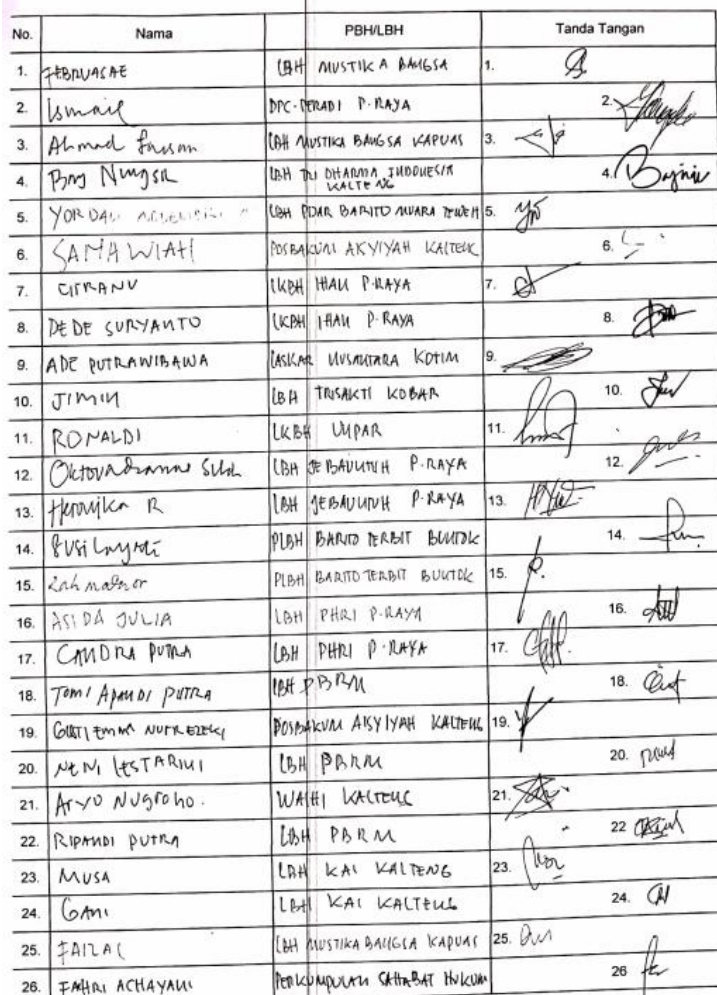 No. Nama PBH/LBH Tanda Tangan
1. FEBRUASAE LBH MUSTIKA BANGSA 1.
2. Ismail DPC-PERADI P.RAYA 2.
3. Ahmad LBH MUSTIKA BANGSA KAPUAS 3.
4. LBH TRI DHARMA INDONESIA KALTENG 4.
5. YORDAN LBH PIJAR BARITO MUARA TEWEH 5.
6. SAMAWIAH POSBAKUM AKYIYAH KALTENG 6.
7. CITRANU LKBH IHAN P.RAYA 7.
8. DEDE SURYANTO LKBH IHAN P.RAYA 8.
9. ADE PUTRAWIBAWA LASKAR NUSANTARA KOTIM 9.
10. JIMIN LBH TRISAKTI KOBAR 10.
11. RONALDI LKBH UMPAR 11.
12. LBH P.RAYA 12.
13. R LBH P.RAYA 13.
14. PLBH BARITO TERBIT BUNTOK 14.
15. PLBH BARITO TERBIT BUNTOK 15.
16. ASIDA JULIA LBH PHRI P.RAYA 16.
17. CANDRA PUTRA LBH PHRI P.RAYA 17.
18. TOMI APANDI PUTRA LBH PBRM 18.
19. GUSTI EMMA POSBAKUM AISYIYAH KALTENG 19.
20. NENI LESTARINI LBH PBRM 20.
21. Aryo Nugroho. WALHI KALTENG 21.
22. RIPANDI PUTRA LBH PBRM 22
23. MUSA LBH KAI KALTENG 23.
24. GANI LBH KAI KALTENG 24.
25. FAIZAL LBH MUSTIKA BANGSA KAPUAS 25.
26. FAHRI ACHAYANI PERKUMPULAN SAHABAT HUKUM 26